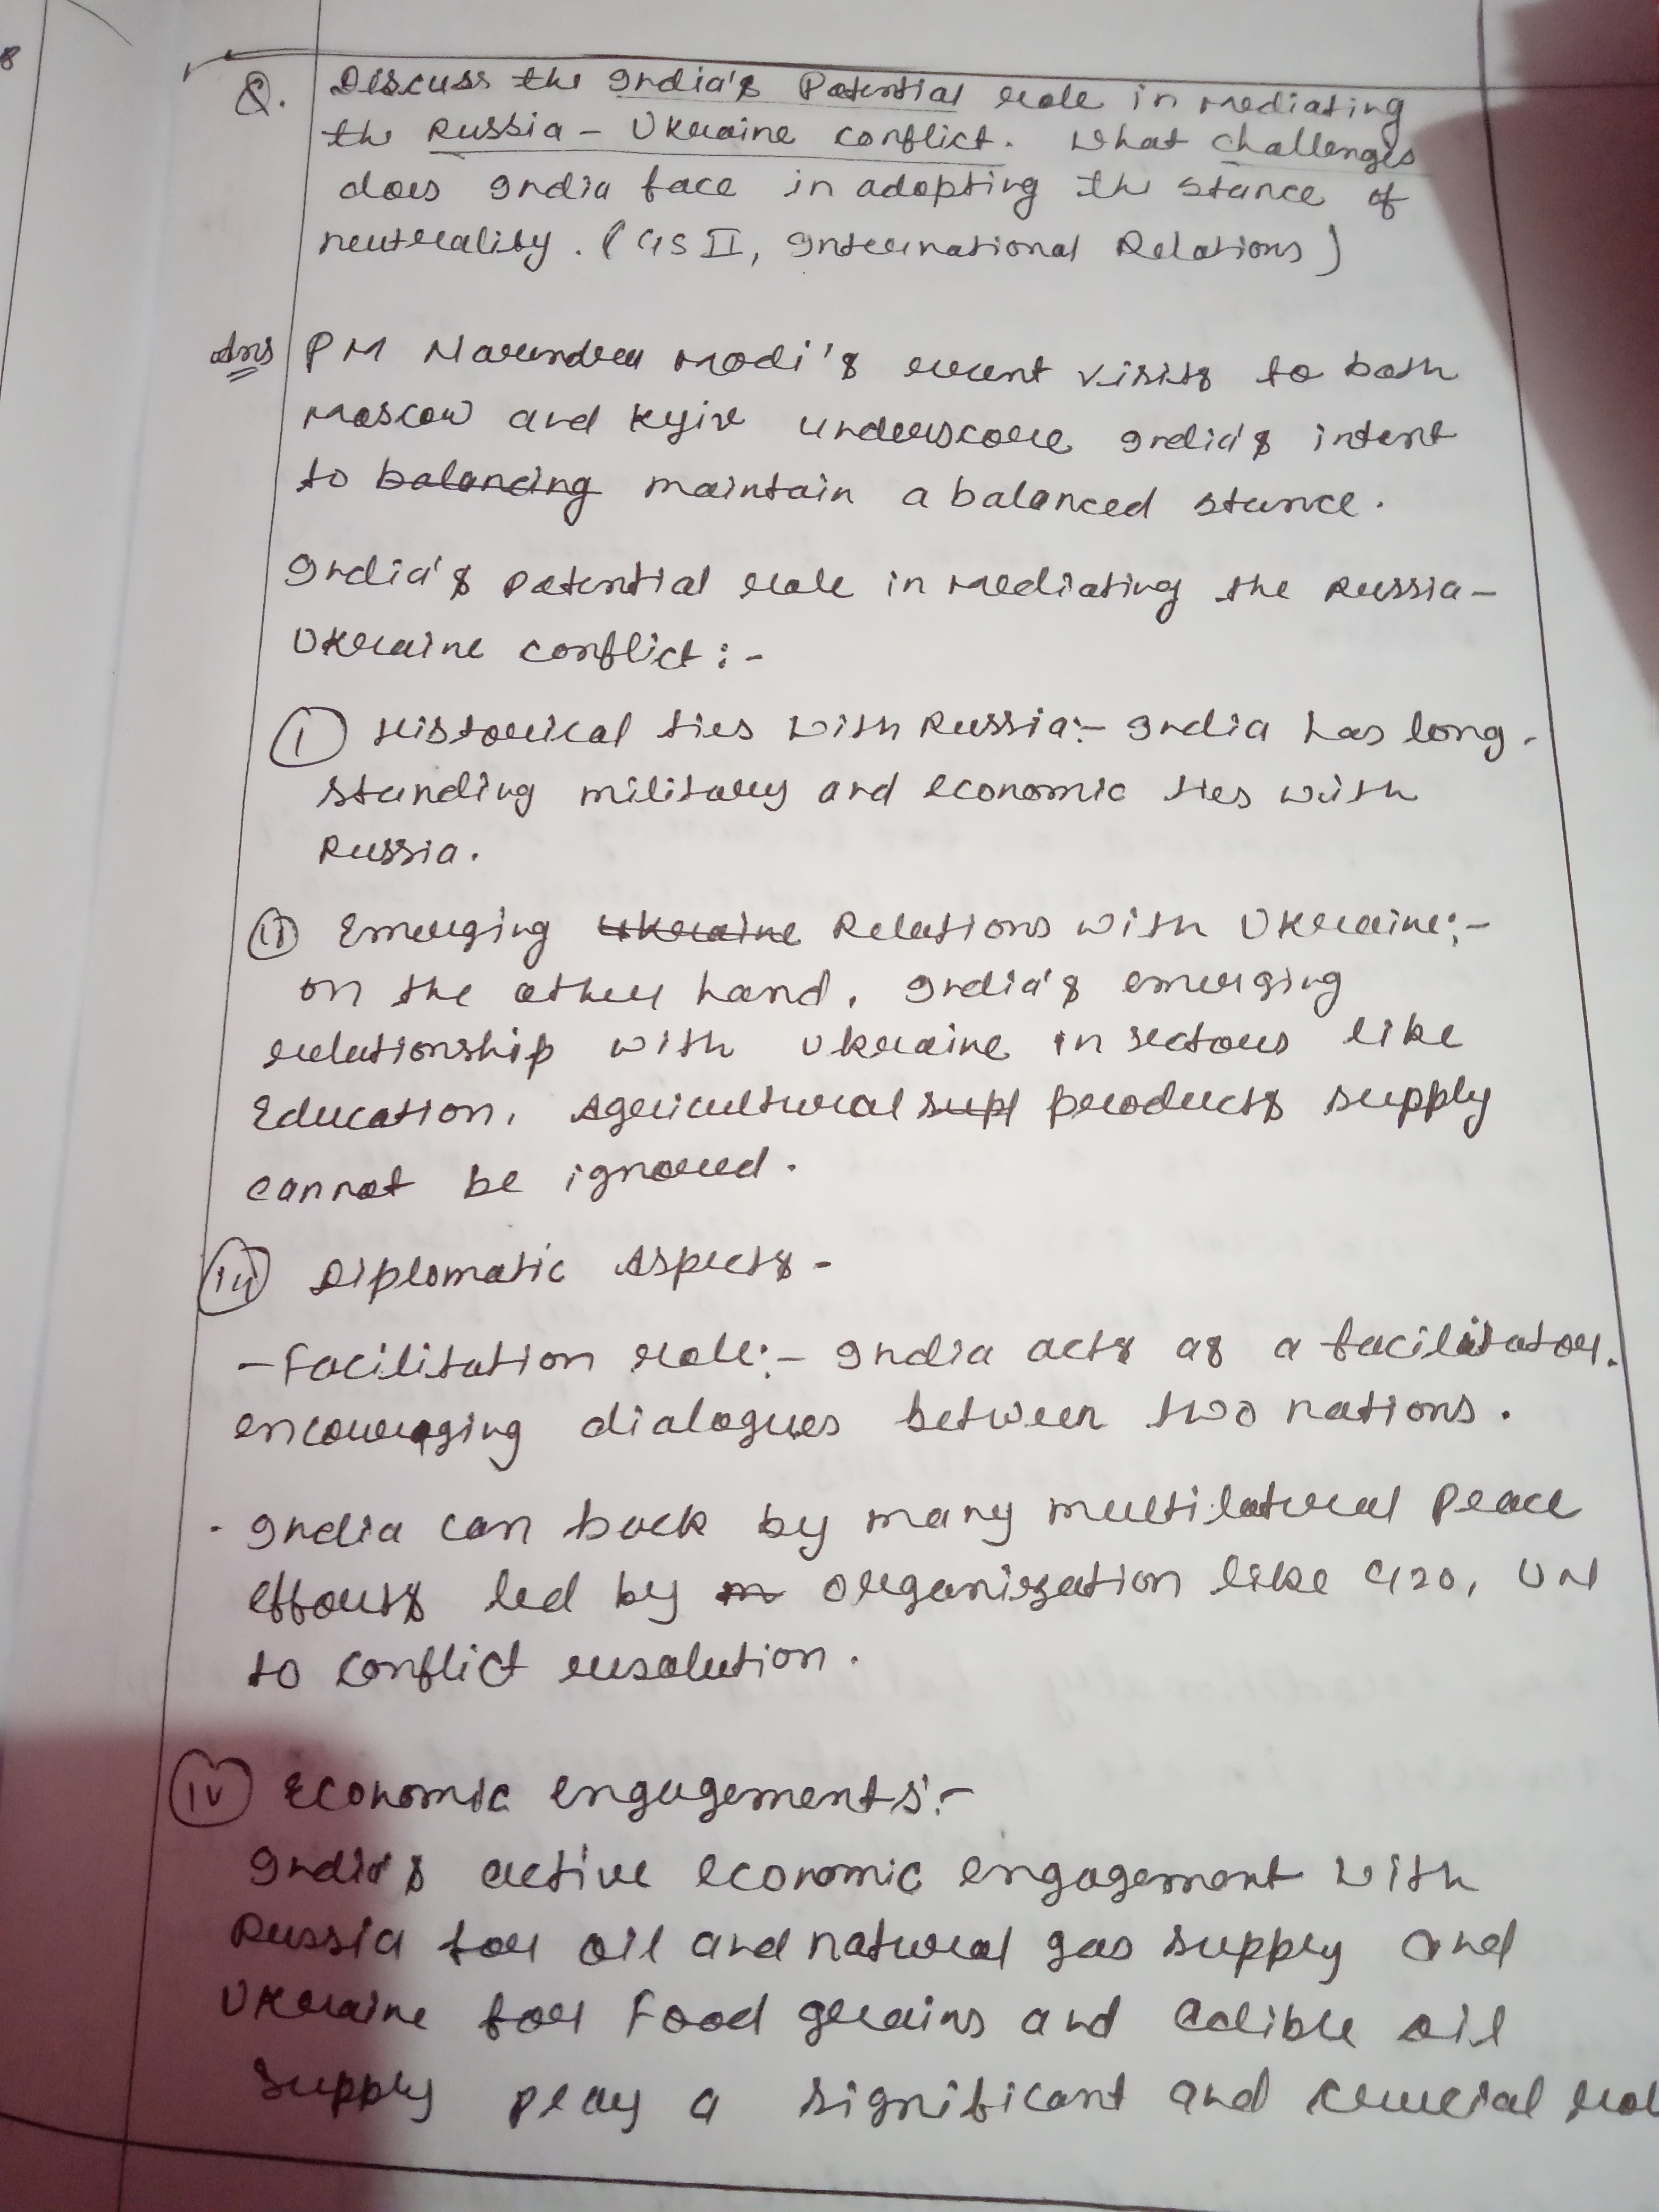 8
Q. Discuss the India's Potential role in mediating
the Russia - Ukraine conflict. What challenges
does India face in adopting the stance of
neutrality. (GS II, International Relations)
Ans PM Narendra Modi's recent visits to both
Moscow and Kyiv underscore India's intent
to balancing maintain a balanced stance.
India's potential role in mediating the Russia-
Ukraine conflict:-
(I) Historical ties with Russia:- India has long-
standing military and economic ties with
Russia.
(ii) Emerging Ukraine Relations with Ukraine:-
on the other hand, India's emerging
relationship with Ukraine in sectors like
Education, Agricultural supl products supply
cannot be ignored.
(iii) Diplomatic Aspects -
- Facilitation role:- India acts as a facilitator.
encouraging dialogues between two nations.
- India can back by many multilateral peace
efforts led by m organization like G20, UN
to conflict resolution.
(iv) Economic engagements:-
India's active economic engagement with
Russia for oil and natural gas supply and
Ukraine for Food grains and edible oil
supply play a significant and crucial rol